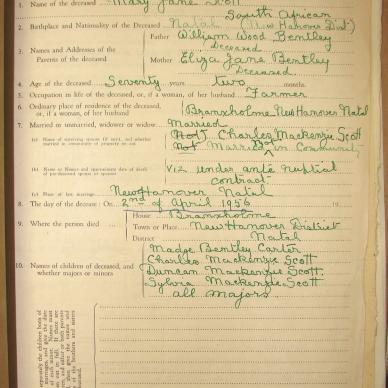 1. Name of the deceased Mary Jane Scott
South African
2. Birthplace and Nationality of the Deceased Natal (New Hanover Dist)
3. Names and Addresses of the Parents of the deceased
Father William Wood Bentley
Deceased
Mother Eliza Jane Bentley
Deceased
4. Age of the deceased Seventy years two months.
5. Occupation in life of the deceased, or, if a woman, of her husband Farmer
6. Ordinary place of residence of the deceased, or, if a woman, of her husband
Branxholme New Hanover Natal
7. Married or unmarried, widower or widow Married
(a) Name of surviving spouse (if any), and whether married in community of property or not
Not Charles Mackenzie Scott
Not Married in Community
(b)
viz under ante nuptial
contract.
(c) Place of last marriage New Hanover Natal
8. The day of the decease: On 2nd of April 1956 19
9. Where the person died
House Branxholme
Town or Place New Hanover District
District Natal
10. Names of children of deceased, and whether majors or minors
Madge Bentley Carter
Charles Mackenzie Scott
Duncan Mackenzie Scott
Sylvia Mackenzie Scott
all majors